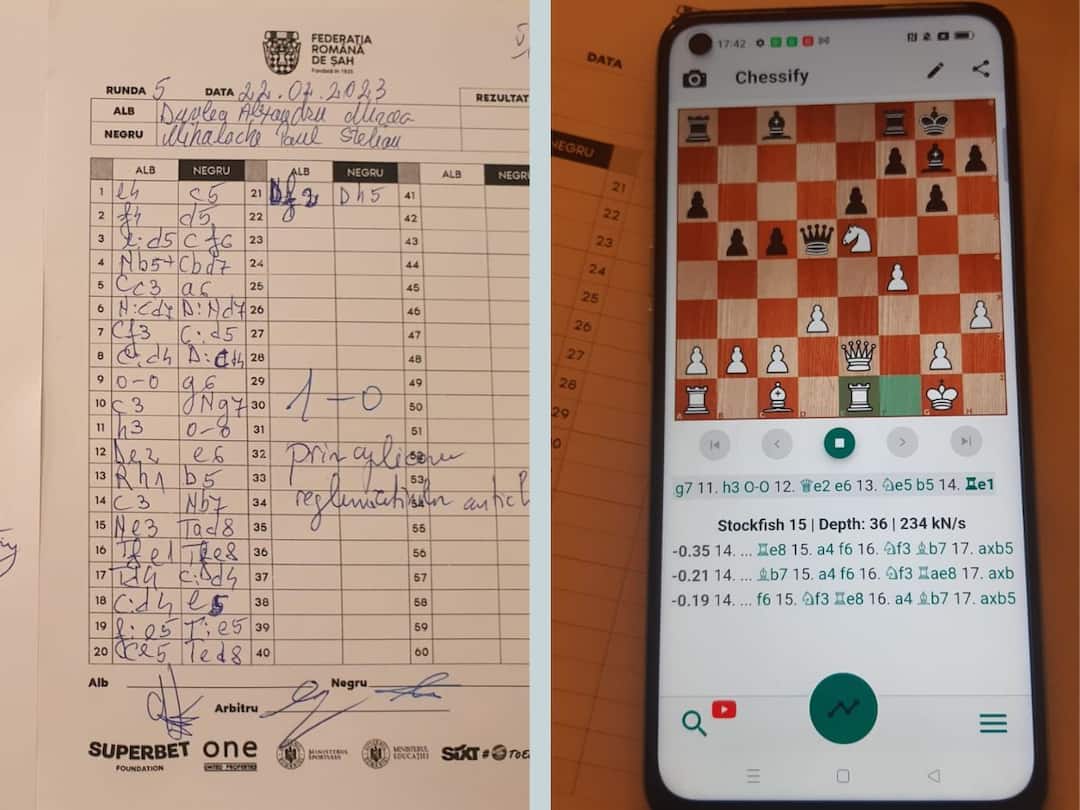 FEDERAȚIA
ROMÂNĂ
DE ȘAH
RUNDA 5 DATA 22.07.2023
REZULTAT
ALB Alexandru Mircea
NEGRU Mihalache Paul Stelian
ALB NEGRU ALB NEGRU ALB NEGRU
1 e4 c5 21 Df2 Dh5 41
2 f4 d5 22 42
3 e:d5 Cf6 23 43
4 Nb5+ Cbd7 24 44
5 Cc3 a6 25 45
6 N:Cd7 D:Nd7 26 46
7 Cf3 C:d5 27 47
8 28 48
9 0-0 g6 29 49
10 Ng7 30 50
11 h3 0-0 31 51
12 De2 e6 32 52
13 Rh1 b5 33 53
14 c3 Nb7 34 54
15 Ne3 Tad8 35 55
16 Tfe8 36 56
17 37 57
18 C:d4 e5 38 58
19 f:e5 T:e5 39 59
20 Ted8 40 60
1-0
prin aplicarea
Alb Negru
Arbitru
SUPERBET
FOUNDATION
one
UNITED PROPERTIES
MINISTERUL
SPORTULUI
MINISTERUL
EDUCAȚIEI
SIXT
DATA
NEGRU
21
22
23
24
25
26
27
28
29
17:42
Chessify
g7 11. h3 O-O 12. ♕e2 e6 13. ♘e5 b5 14. ♖e1
Stockfish 15 | Depth: 36 | 234 kN/s
-0.35 14. ... ♖e8 15. a4 f6 16. ♘f3 ♗b7 17. axb5
-0.21 14. ... ♗b7 15. a4 f6 16. ♘f3 ♖ae8 17. axb
-0.19 14. ... f6 15. ♘f3 ♖e8 16. a4 ♗b7 17. axb5